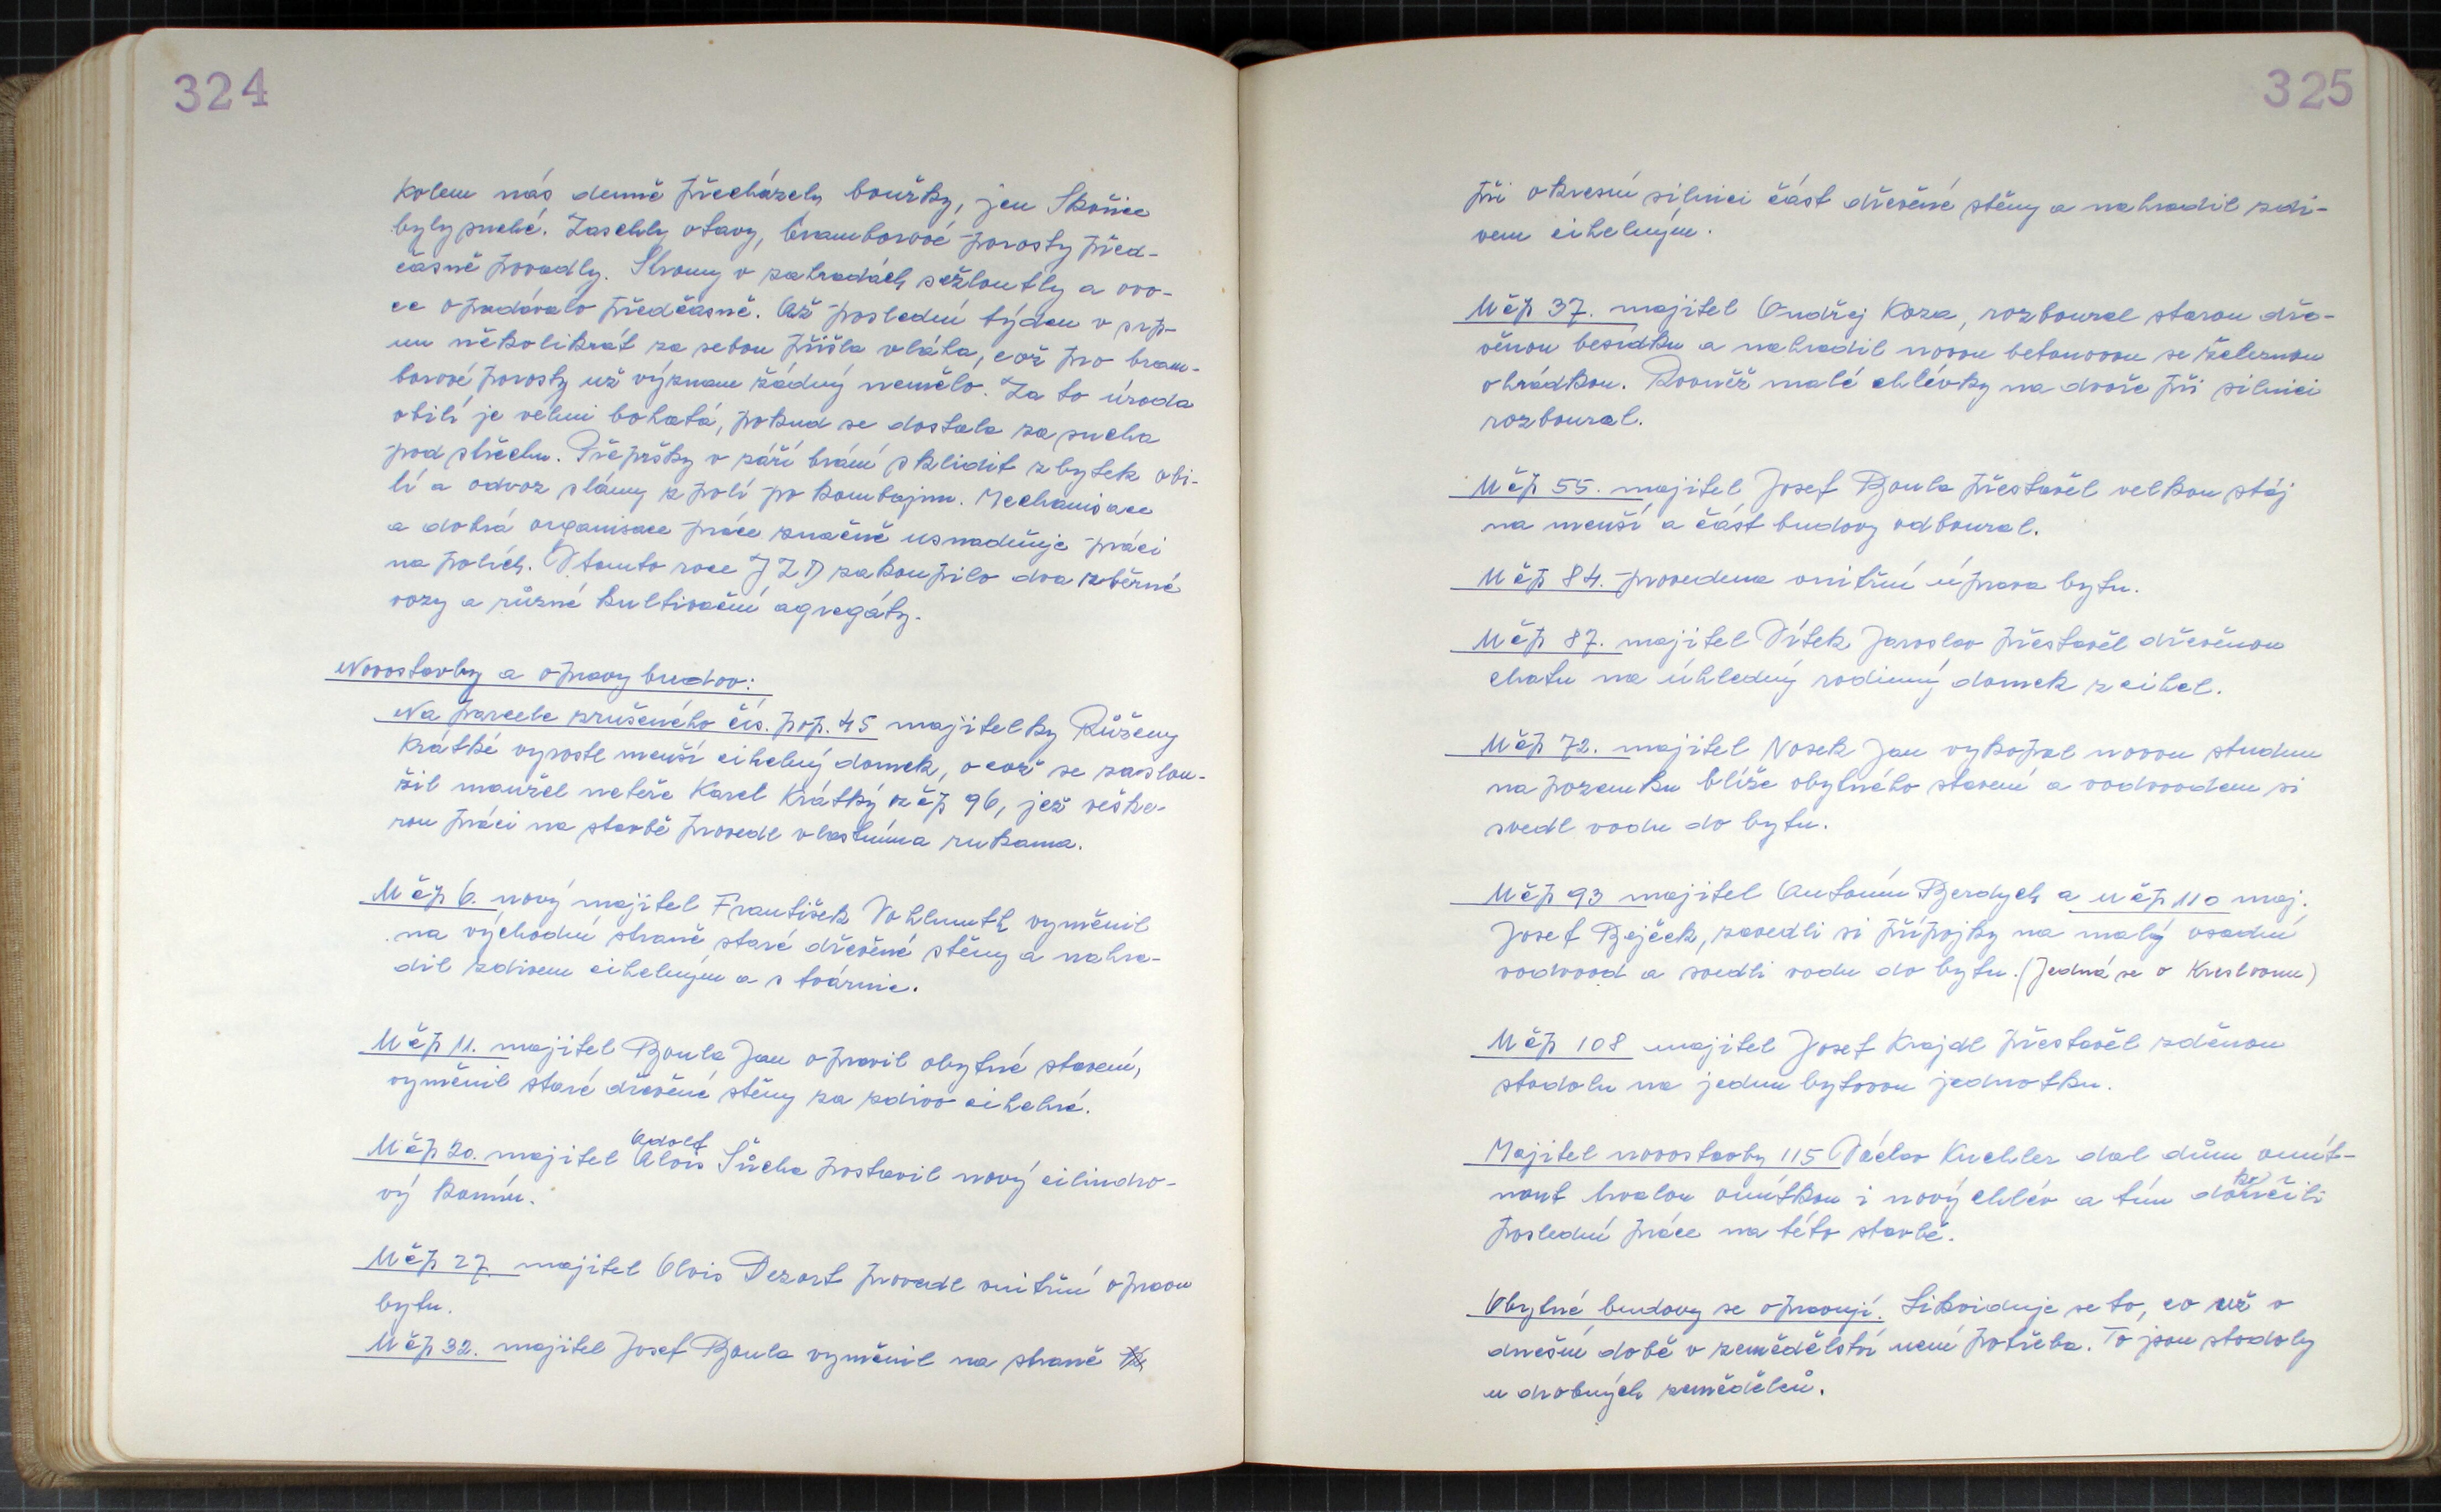 324
Kolem nás denně přecházely bouřky, jen Skořice
byly suché. Zaschly otavy, bramborové porosty před-
časně povadly. Stromy v zahradách sežloutly a ovo-
ce opadávalo předčasně. Až poslední týden v srp-
nu několikrát za sebou přišla vláha, což pro bram-
borové porosty už význam žádný nemělo. Za to úroda
obilí je velmi bohatá, pokud se dostala za sucha
pod střechu. Přepršky v září brání sklidit zbytek obi-
lí a odvoz slámy z polí po kombajnu. Mechanisace
a dobrá organisace práce značně usnadňuje práci
na polích. V tomto roce JZD zakoupilo dva sběrné
vozy a různé kultivační agregáty.
Novostavby a opravy budov:
Na parcele zrušeného čís. pop. 45 majitelky Růženy
Krátké vyrostl menší cihelný domek, o což se zaslou-
žil manžel neteře Karel Krátký z čp 96, jež veške-
rou práci na stavbě provedl vlastníma rukama.
U čp 6. nový majitel František Vohlmuth vyměnil
na východní straně staré dřevěné stěny a nahra-
dil zdivem cihelným a s tvárnic.
U čp 11. majitel Boula Jan opravil obytné stavení,
vyměnil staré dřevěné stěny za zdivo cihelné.
Adolf
U čp 20. majitel Alois Sůcha postavil nový cilindro-
vý komín.
U čp 27. majitel Alois Dezort provedl vnitřní opravu
bytu.
U čp 32. majitel Josef Boula vyměnil na straně
325
při okresní silnici část dřevěné stěny a nahradil zdi-
vem cihelným.
U čp 37. majitel Ondřej Koza, rozboural starou dře-
věnou besídku a nahradil novou betonovou se železnou
ohrádkou. Rovněž malé chlévky na dvoře při silnici
rozboural.
U čp 55. majitel Josef Boula přestavěl velkou stáj
na menší a část budovy odboural.
U čp 84. provedena vnitřní úprava bytu.
U čp 87. majitel Vítek Jaroslav přestavěl dřevěnou
chatu na úhledný rodinný domek z cihel.
U čp 72. majitel Nosek Jan vykopal novou studnu
na pozemku blíže obytného stavení a vodvodem si
svedl vodu do bytu.
U čp 93 majitel Antonín Berdych a u čp 110 maj.
Josef Bejček, zavedli si přípojky na malý osadní
vodvod a svedli vodu do bytu. (Jedná se o Kreslovnu)
U čp 108 majitel Josef Krajdl přestavěl zděnou
stodolu na jednu bytovou jednotku.
Majitel novostavby 115 Václav Kuchler dal dům omít-
nout trvalou omítkou i nový chlév a tím dokončili
poslední práce na této stavbě.
Obytné budovy se opravují. Likviduje se to, co už v
dnešní době v zemědělství není potřeba. To jsou stodoly
u drobných zemědělců.